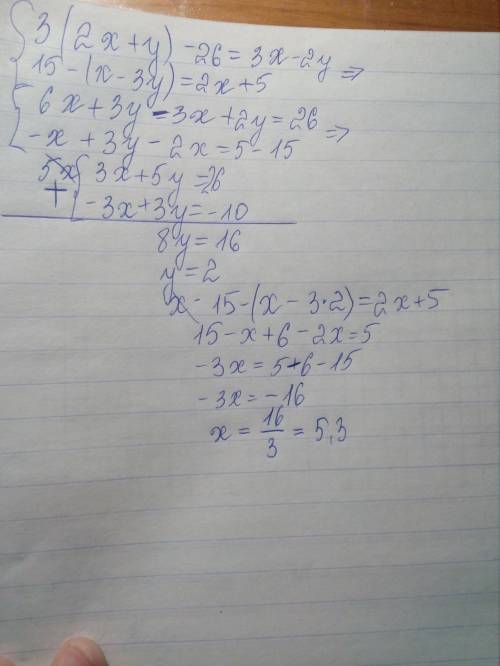 3(2x+y)-26=3x-2y ⇒
15-(x-3y)=2x+5
6x+3y-3x+2y=26 ⇒
-x+3y-2x=5-15
3x+5y=26
+ -3x+3y=-10
8y=16
y=2
x - 15-(x-3·2)=2x+5
15-x+6-2x=5
-3x=5+6-15
-3x=-16
x=16/3=5,3